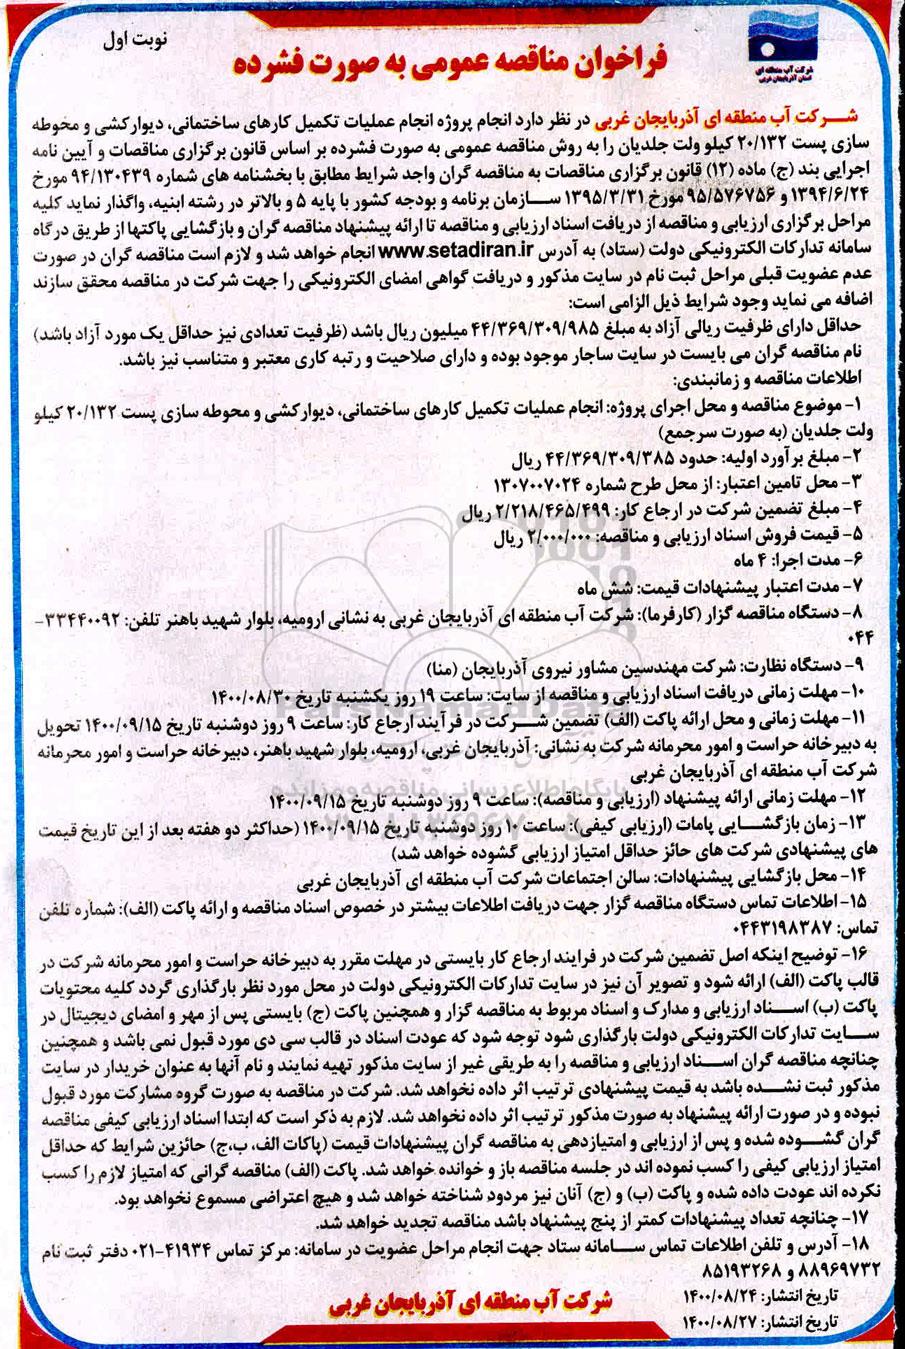 نوبت اول
شرکت آب منطقه ای
استان آذربایجان غربی
فراخوان مناقصه عمومی به صورت فشرده
شـــرکت آب منطقه ای آذربایجان غربی در نظر دارد انجام پروژه انجام عملیات تکمیل کارهای ساختمانی، دیوارکشی و محوطه
سازی پست ۲۰/۱۳۲ کیلو ولت جلدیان را به روش مناقصه عمومی به صورت فشرده بر اساس قانون برگزاری مناقصات و آیین نامه
اجرایی بند (ج) ماده (۱۲) قانون برگزاری مناقصات به مناقصه گران واجد شرایط مطابق با بخشنامه های شماره ۹۴/۱۳۰۴۳۹ مورخ
۱۳۹۴/۶/۲۴ و ۹۵/۵۷۶۷۵۶ مورخ ۱۳۹۵/۳/۳۱ ســازمان برنامه و بودجه کشور با پایه ۵ و بالاتر در رشته ابنیه، واگذار نماید کلیه
مراحل برگزاری ارزیابی و مناقصه از دریافت اسناد ارزیابی و مناقصه تا ارائه پیشنهاد مناقصه گران و بازگشایی پاکتها از طریق درگاه
سامانه تدارکات الکترونیکی دولت (ستاد) به آدرس www.setadiran.ir انجام خواهد شد و لازم است مناقصه گران در صورت
عدم عضویت قبلی مراحل ثبت نام در سایت مذکور و دریافت گواهی امضای الکترونیکی را جهت شرکت در مناقصه محقق سازند
اضافه می نماید وجود شرایط ذیل الزامی است:
حداقل دارای ظرفیت ریالی آزاد به مبلغ ۴۴/۳۶۹/۳۰۹/۹۸۵ میلیون ریال باشد (ظرفیت تعدادی نیز حداقل یک مورد آزاد باشد)
نام مناقصه گران می بایست در سایت ساجار موجود بوده و دارای صلاحیت و رتبه کاری معتبر و متناسب نیز باشد.
اطلاعات مناقصه و زمانبندی:
۱- موضوع مناقصه و محل اجرای پروژه: انجام عملیات تکمیل کارهای ساختمانی، دیوارکشی و محوطه سازی پست ۲۰/۱۳۲ کیلو
ولت جلدیان (به صورت سرجمع)
۲- مبلغ برآورد اولیه: حدود ۴۴/۳۶۹/۳۰۹/۳۸۵ ریال
۳- محل تامین اعتبار: از محل طرح شماره ۱۳۰۷۰۰۷۰۲۴
۴- مبلغ تضمین شرکت در ارجاع کار: ۲/۲۱۸/۴۶۵/۴۹۹ ریال
۵- قیمت فروش اسناد ارزیابی و مناقصه: ۲/۰۰۰/۰۰۰ ریال
۶- مدت اجرا: ۴ ماه
۷- مدت اعتبار پیشنهادات قیمت: شش ماه
۸- دستگاه مناقصه گزار (کارفرما): شرکت آب منطقه ای آذربایجان غربی به نشانی ارومیه، بلوار شهید باهنر تلفن: ۳۳۴۴۰۰۹۲-
۰۴۴
۹- دستگاه نظارت: شرکت مهندسین مشاور نیروی آذربایجان (منا)
۱۰- مهلت زمانی دریافت اسناد ارزیابی و مناقصه از سایت: ساعت ۱۹ روز یکشنبه تاریخ ۱۴۰۰/۰۸/۳۰
۱۱- مهلت زمانی و محل ارائه پاکت (الف) تضمین شـــرکت در فرآیند ارجاع کار: ساعت ۹ روز دوشنبه تاریخ ۱۴۰۰/۰۹/۱۵ تحویل
به دبیرخانه حراست و امور محرمانه شرکت به نشانی: آذربایجان غربی، ارومیه، بلوار شهید باهنر، دبیرخانه حراست و امور محرمانه
شرکت آب منطقه ای آذربایجان غربی
۱۲- مهلت زمانی ارائه پیشنهاد (ارزیابی و مناقصه): ساعت ۹ روز دوشنبه تاریخ ۱۴۰۰/۰۹/۱۵
۱۳- زمان بازگشـــایی پامات (ارزیابی کیفی): ساعت ۱۰ روز دوشنبه تاریخ ۱۴۰۰/۰۹/۱۵ (حداکثر دو هفته بعد از این تاریخ قیمت
های پیشنهادی شرکت های حائز حداقل امتیاز ارزیابی گشوده خواهد شد)
۱۴- محل بازگشایی پیشنهادات: سالن اجتماعات شرکت آب منطقه ای آذربایجان غربی
۱۵- اطلاعات تماس دستگاه مناقصه گزار جهت دریافت اطلاعات بیشتر در خصوص اسناد مناقصه و ارائه پاکت (الف): شماره تلفن
تماس: ۰۴۴۳۱۹۸۳۸۷
۱۶- توضیح اینکه اصل تضمین شرکت در فرایند ارجاع کار بایستی در مهلت مقرر به دبیرخانه حراست و امور محرمانه شرکت در
قالب پاکت (الف) ارائه شود و تصویر آن نیز در سایت تدارکات الکترونیکی دولت در محل مورد نظر بارگذاری گردد کلیه محتویات
پاکت (ب) اســـناد ارزیابی و مدارک و اسناد مربوط به مناقصه گزار و همچنین پاکت (ج) بایستی پس از مهر و امضای دیجیتال در
ســـایت تدارکات الکترونیکی دولت بارگذاری شود توجه شود که عودت اسناد در قالب سی دی مورد قبول نمی باشد و همچنین
چنانچه مناقصه گران اســـناد ارزیابی و مناقصه را به طریقی غیر از سایت مذکور تهیه نمایند و نام آنها به عنوان خریدار در سایت
مذکور ثبت نشـــده باشد به قیمت پیشنهادی ترتیب اثر داده نخواهد شد. شرکت در مناقصه به صورت گروه مشارکت مورد قبول
نبوده و در صورت ارائه پیشنهاد به صورت مذکور ترتیب اثر داده نخواهد شد. لازم به ذکر است که ابتدا اسناد ارزیابی کیفی مناقصه
گران گشـــوده شده و پس از ارزیابی و امتیازدهی به مناقصه گران پیشنهادات قیمت (پاکات الف، ب،ج) حائزین شرایط که حداقل
امتیاز ارزیابی کیفی را کسب نموده اند در جلسه مناقصه باز و خوانده خواهد شد. پاکت (الف) مناقصه گرانی که امتیاز لازم را کسب
نکرده اند عودت داده شده و پاکت (ب) و (ج) آنان نیز مردود شناخته خواهد شد و هیچ اعتراضی مسموع نخواهد بود.
۱۷- چنانچه تعداد پیشنهادات کمتر از پنج پیشنهاد باشد مناقصه تجدید خواهد شد.
۱۸- آدرس و تلفن اطلاعات تماس ســـامانه ستاد جهت انجام مراحل عضویت در سامانه: مرکز تماس ۴۱۹۳۴-۰۲۱ دفتر ثبت نام
۸۸۹۶۹۷۳۲ و ۸۵۱۹۳۲۶۸
تاریخ انتشار: ۱۴۰۰/۰۸/۲۴
تاریخ انتشار: ۱۴۰۰/۰۸/۲۷
شرکت آب منطقه ای آذربایجان غربی